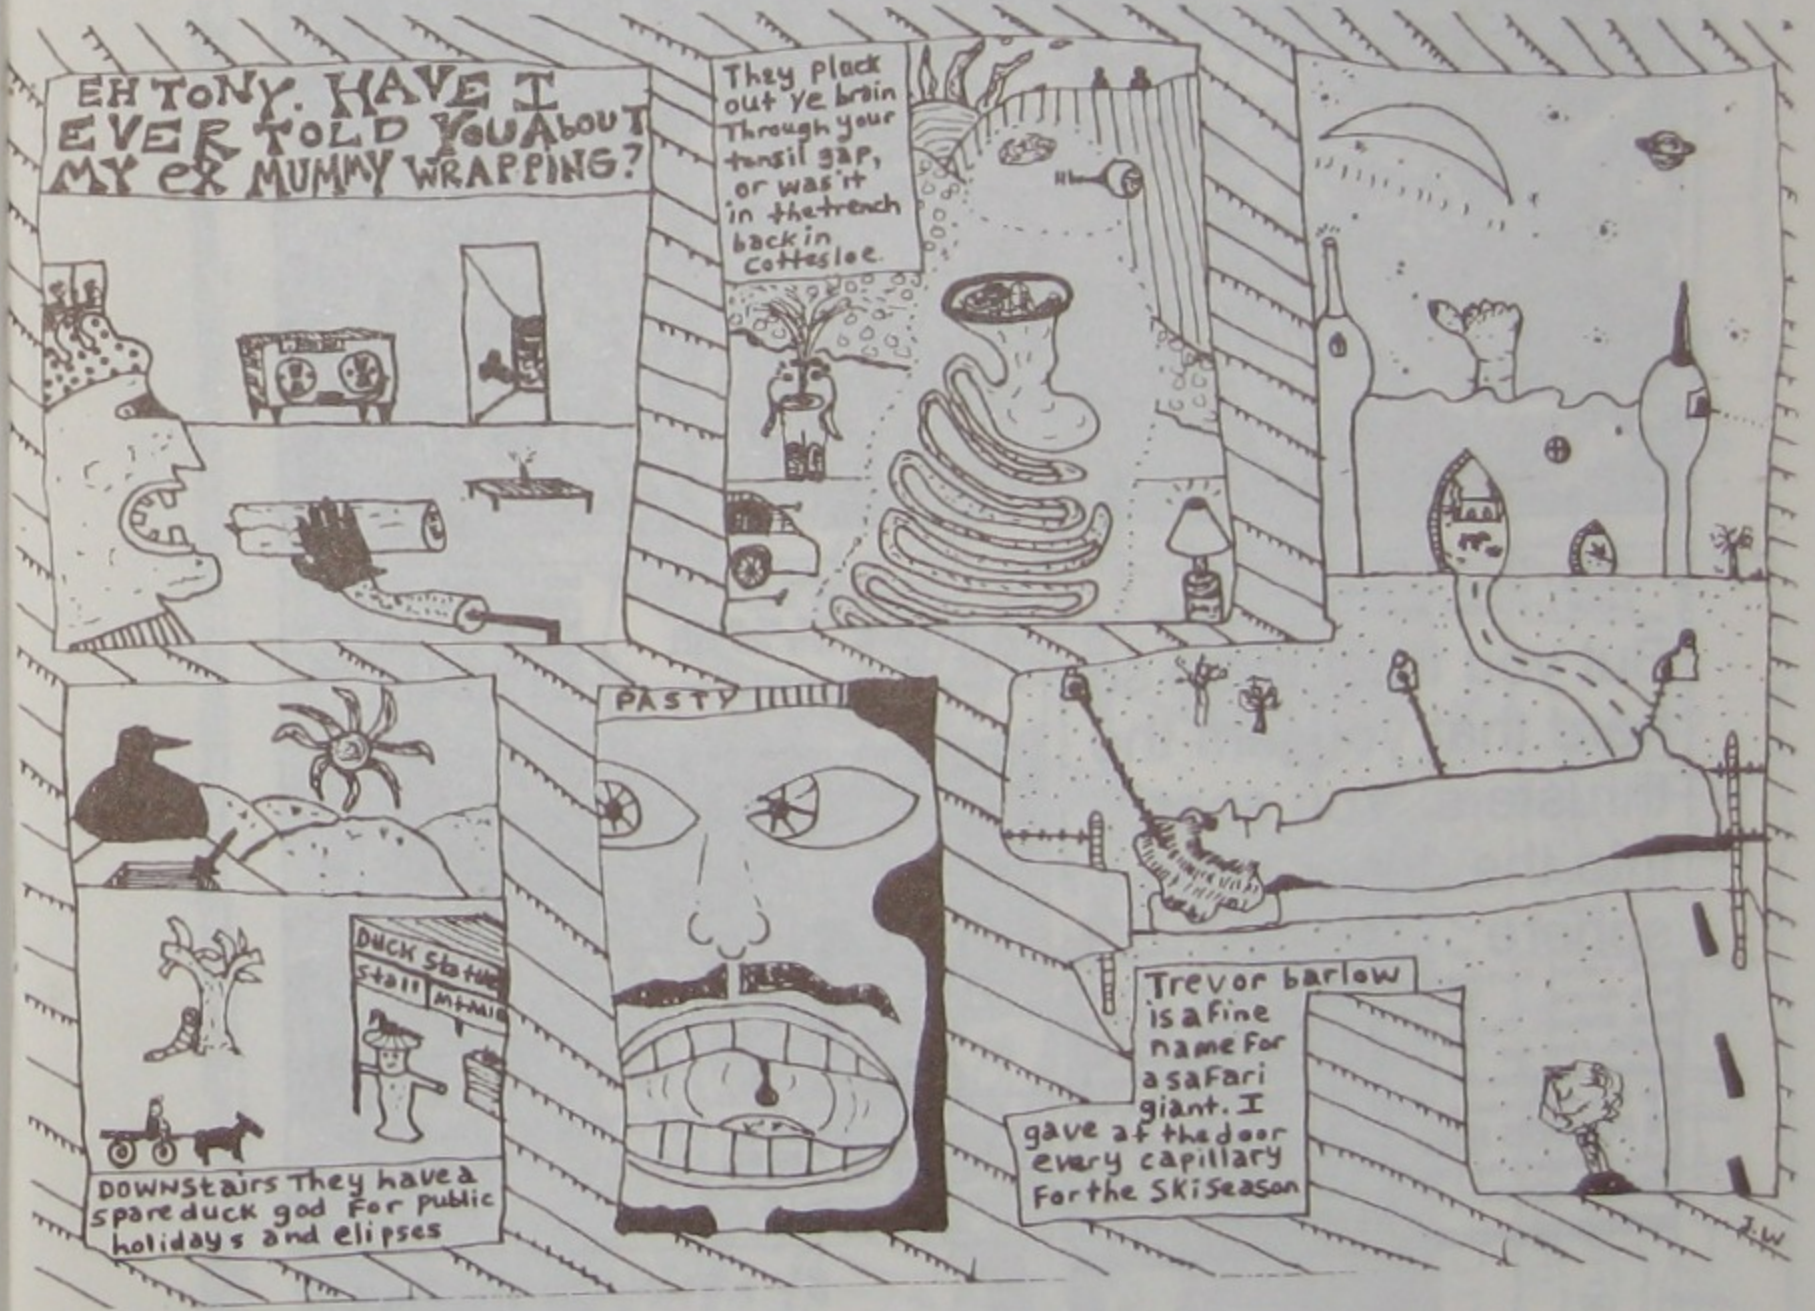 EH TONY. HAVE I
EVER TOLD YOU AbOUT
MY eX MUMMY WRAPPING?
They Pluck
out ye brain
Through your
tonsil gap,
or was it
in the trench
back in
Cottesloe.
DUCK Statue
Stall
DOWNStairs They have a
spare duck god For Public
holidays and elipses
PASTY
Trevor barlow
is a fine
name For
a saFari
giant. I
gave at the door
every capillary
For the SKi Season
J.W